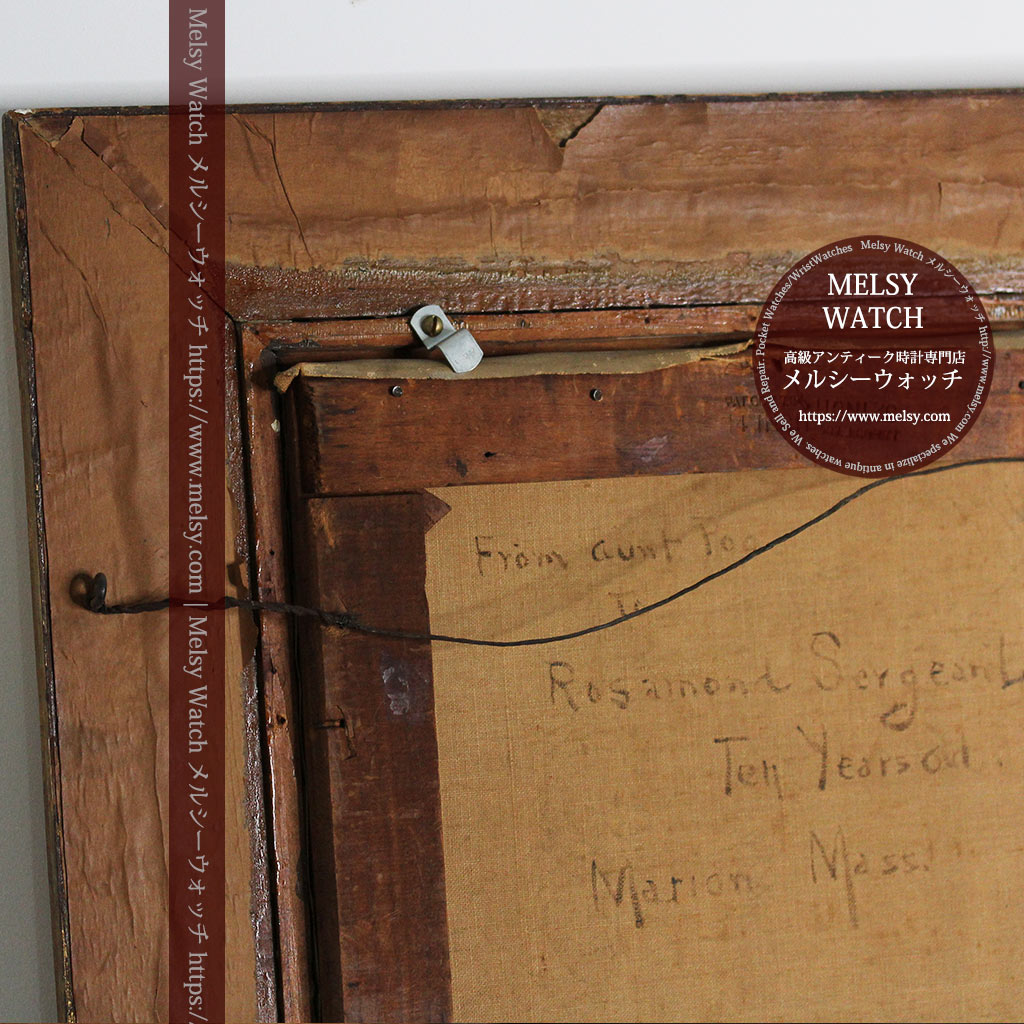 Melsy Watch メルシーウォッチ https://www.melsy.com | Melsy Watch メルシーウォッチ https:/
Pocket Watches/WristWatches Melsy Watch メルシーウォッチ http://www.melsy.com We specialize in antique watches. We Sell and Repair.
MELSY
WATCH
高級アンティーク時計専門店
メルシーウォッチ
https://www.melsy.com
From aunt
To
Rosamond Sergeant
Ten Years old.
Marion Mass.